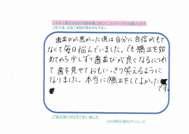 歯並びが悪かった頃は自分に自信がもて
なくて毎日悩んでいました。でも矯正を始
めてから少しずつ歯並びが良くなるにつれ
て歯を見せておもいっきり笑えるように
なりました。本当に矯正をしてよかった
です。